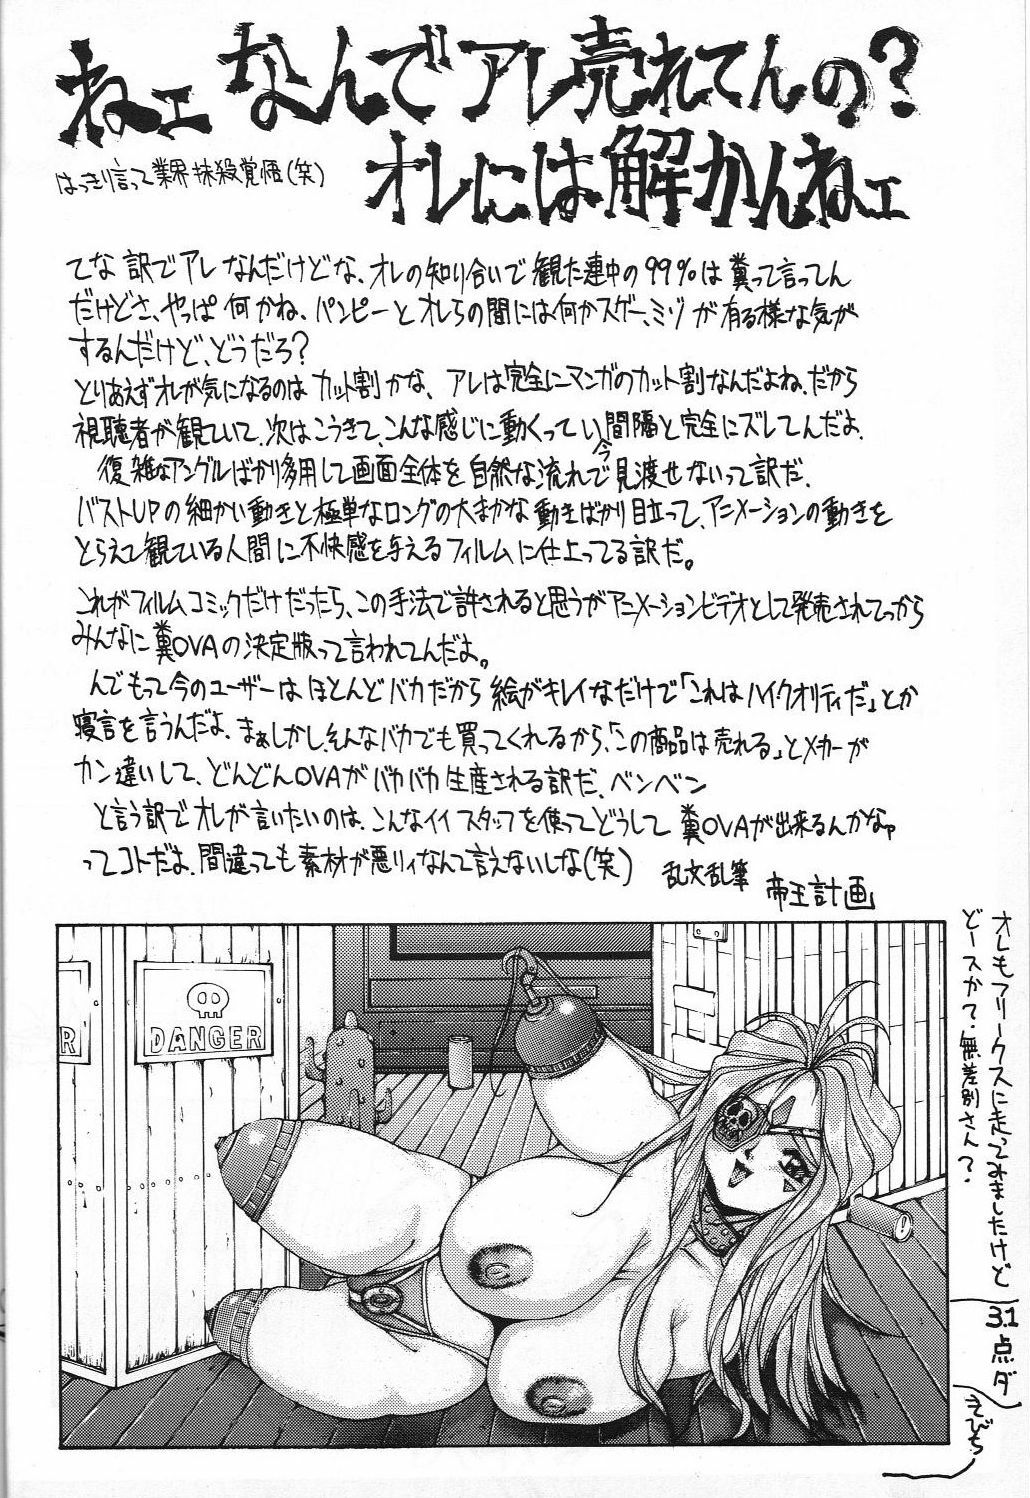 ねェなんでアレ売れてんの？
はっきり言って業界抹殺覚悟(笑)
オレには解かんねェ
てな訳でアレなんだけどな、オレの知り合いで観た連中の99%は糞って言ってん
だけどさ、やっぱ何かね、パンピーとオレらの間には何かスゲー、ミゾが有る様な気が
するんだけど、どうだろ？
とりあえずオレが気になるのはカット割かな、アレは完全にマンガのカット割なんだよね、だから
視聴者が観ていて、次はこうきて、こんな感じに動くってい間隔と完全にズレてんだよ、
復雑なアングルばかり多用して画面全体を自然な流れで今見渡せないって訳だ、
バストUPの細かい動きと極単なロングの大まかな動きばかり目立って、アニメーションの動きを
とらえて観ている人間に不快感を与えるフィルムに仕上ってる訳だ。
これがフィルムコミックだけだったら、この手法で許されると思うがアニメーションビデオとして発売されてっから
みんなに糞OVAの決定版って言われてんだよ。
んでもって今のユーザーはほとんどバカだから絵がキレイなだけで「これはハイクオリティだ」とか
寝言を言うんだよ、まぁしかし、そんなバカでも買ってくれるから、「この商品は売れる」とメーカーが
カン違いして、どんどんOVAがバカバカ生産される訳だ、ベンベン
と言う訳でオレが言いたいのは、こんなイイスタッフを使ってどうして糞OVAが出来るんかなァ
ってコトだよ、間違っても素材が悪リィなんて言えないしな(笑)
乱文乱筆
帝王計画
オレもフリークスに走ってみましたけど
どースかて、無差別さん？
31点ダ
えびち
R
DANGER